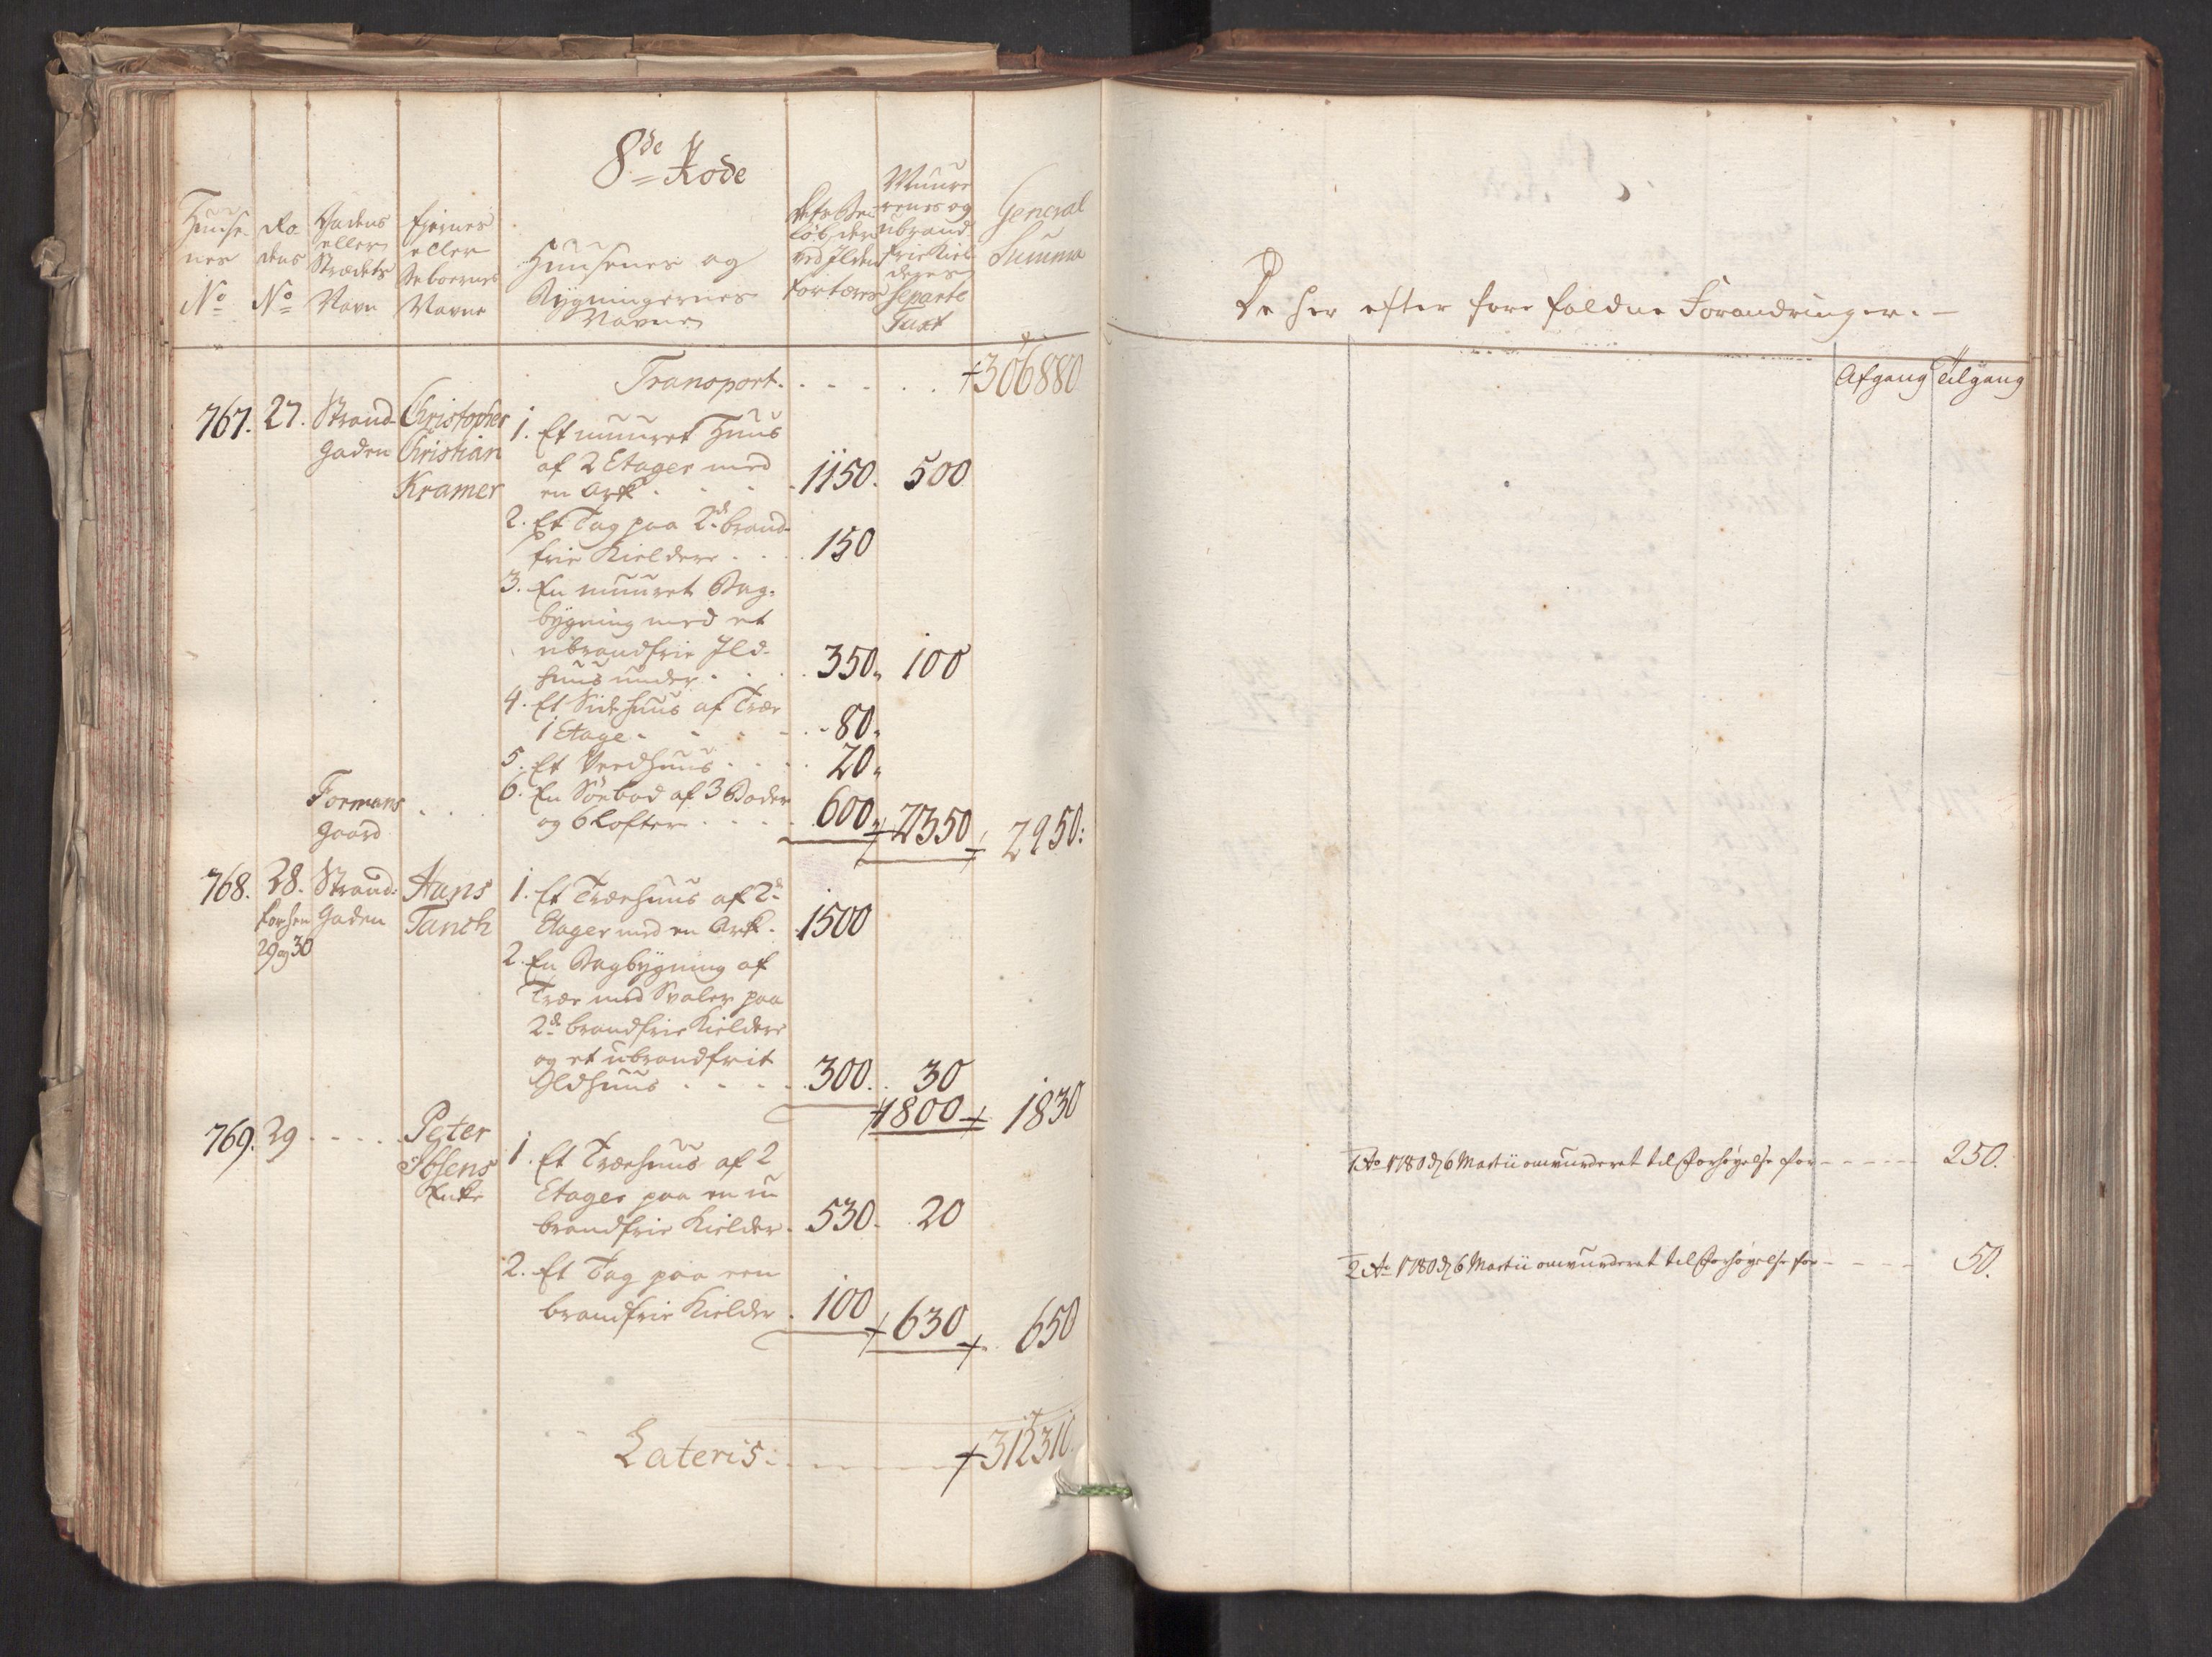 8de Rode
Huuse-
nes
No
Ro-
dens
No
Gadens
eller
Strædets
Navn
Ejernes
eller
Beboernes
Navne
Huusenes og
Bygningernes
Navne
ved Ilden
fortæres
Muure
renes og
ubrand
frie Kiel
deres
Separte
Taxt
General
Summa
Transport . . . . . 306880
767. 27. Strand- Christopher 1. Et muuret Huus
Gaden Christian af 2 Etager med
Kramer en Ark . . . 1150. 500
2. Et Tag paa 2de brand-
frie Kieldere . . . 150
3. En muuret Bag-
bygning med et
ubrandfrie Ild-
huus under . . . 350. 100
4. Et Sidehuus af Træ
1 Etage . . . 80.
5. Et Vedhuus . . . 20.
Formans . . 6. En Søebod af 3 Boder
gaard og 6 Lofter . . . 600. 2350 2950:
768. 28. Strand- Hans 1. Et Træehuus af 2de
forhen Gaden Tanch Etager med en Ark . 1500
29 og 30
2. En Bagbygning af
Træe med Svaler paa
2de brandfrie Kieldere
og et ubrandfrit
Ildhuus . . . 300. 30
1800 1830
769. 29 . . . . Peter
Ibsens 1. Et Træehuus af 2
Enke Etager paa en u
brandfrie Kielder . 530. 20
2. Et Tag paa een
brandfrie Kielder . 100 630 650
Lateris: . . . . . 312310.
De her efter fore faldne Forandringer. –
Afgang Tilgang
1 Ao 1780 d. 6 Martii omvurderet til Forhøyelse for - - - - - 250.
2 Ao 1780 d. 6 Martii omvurderet til Forhøyelse for - - - - 50.